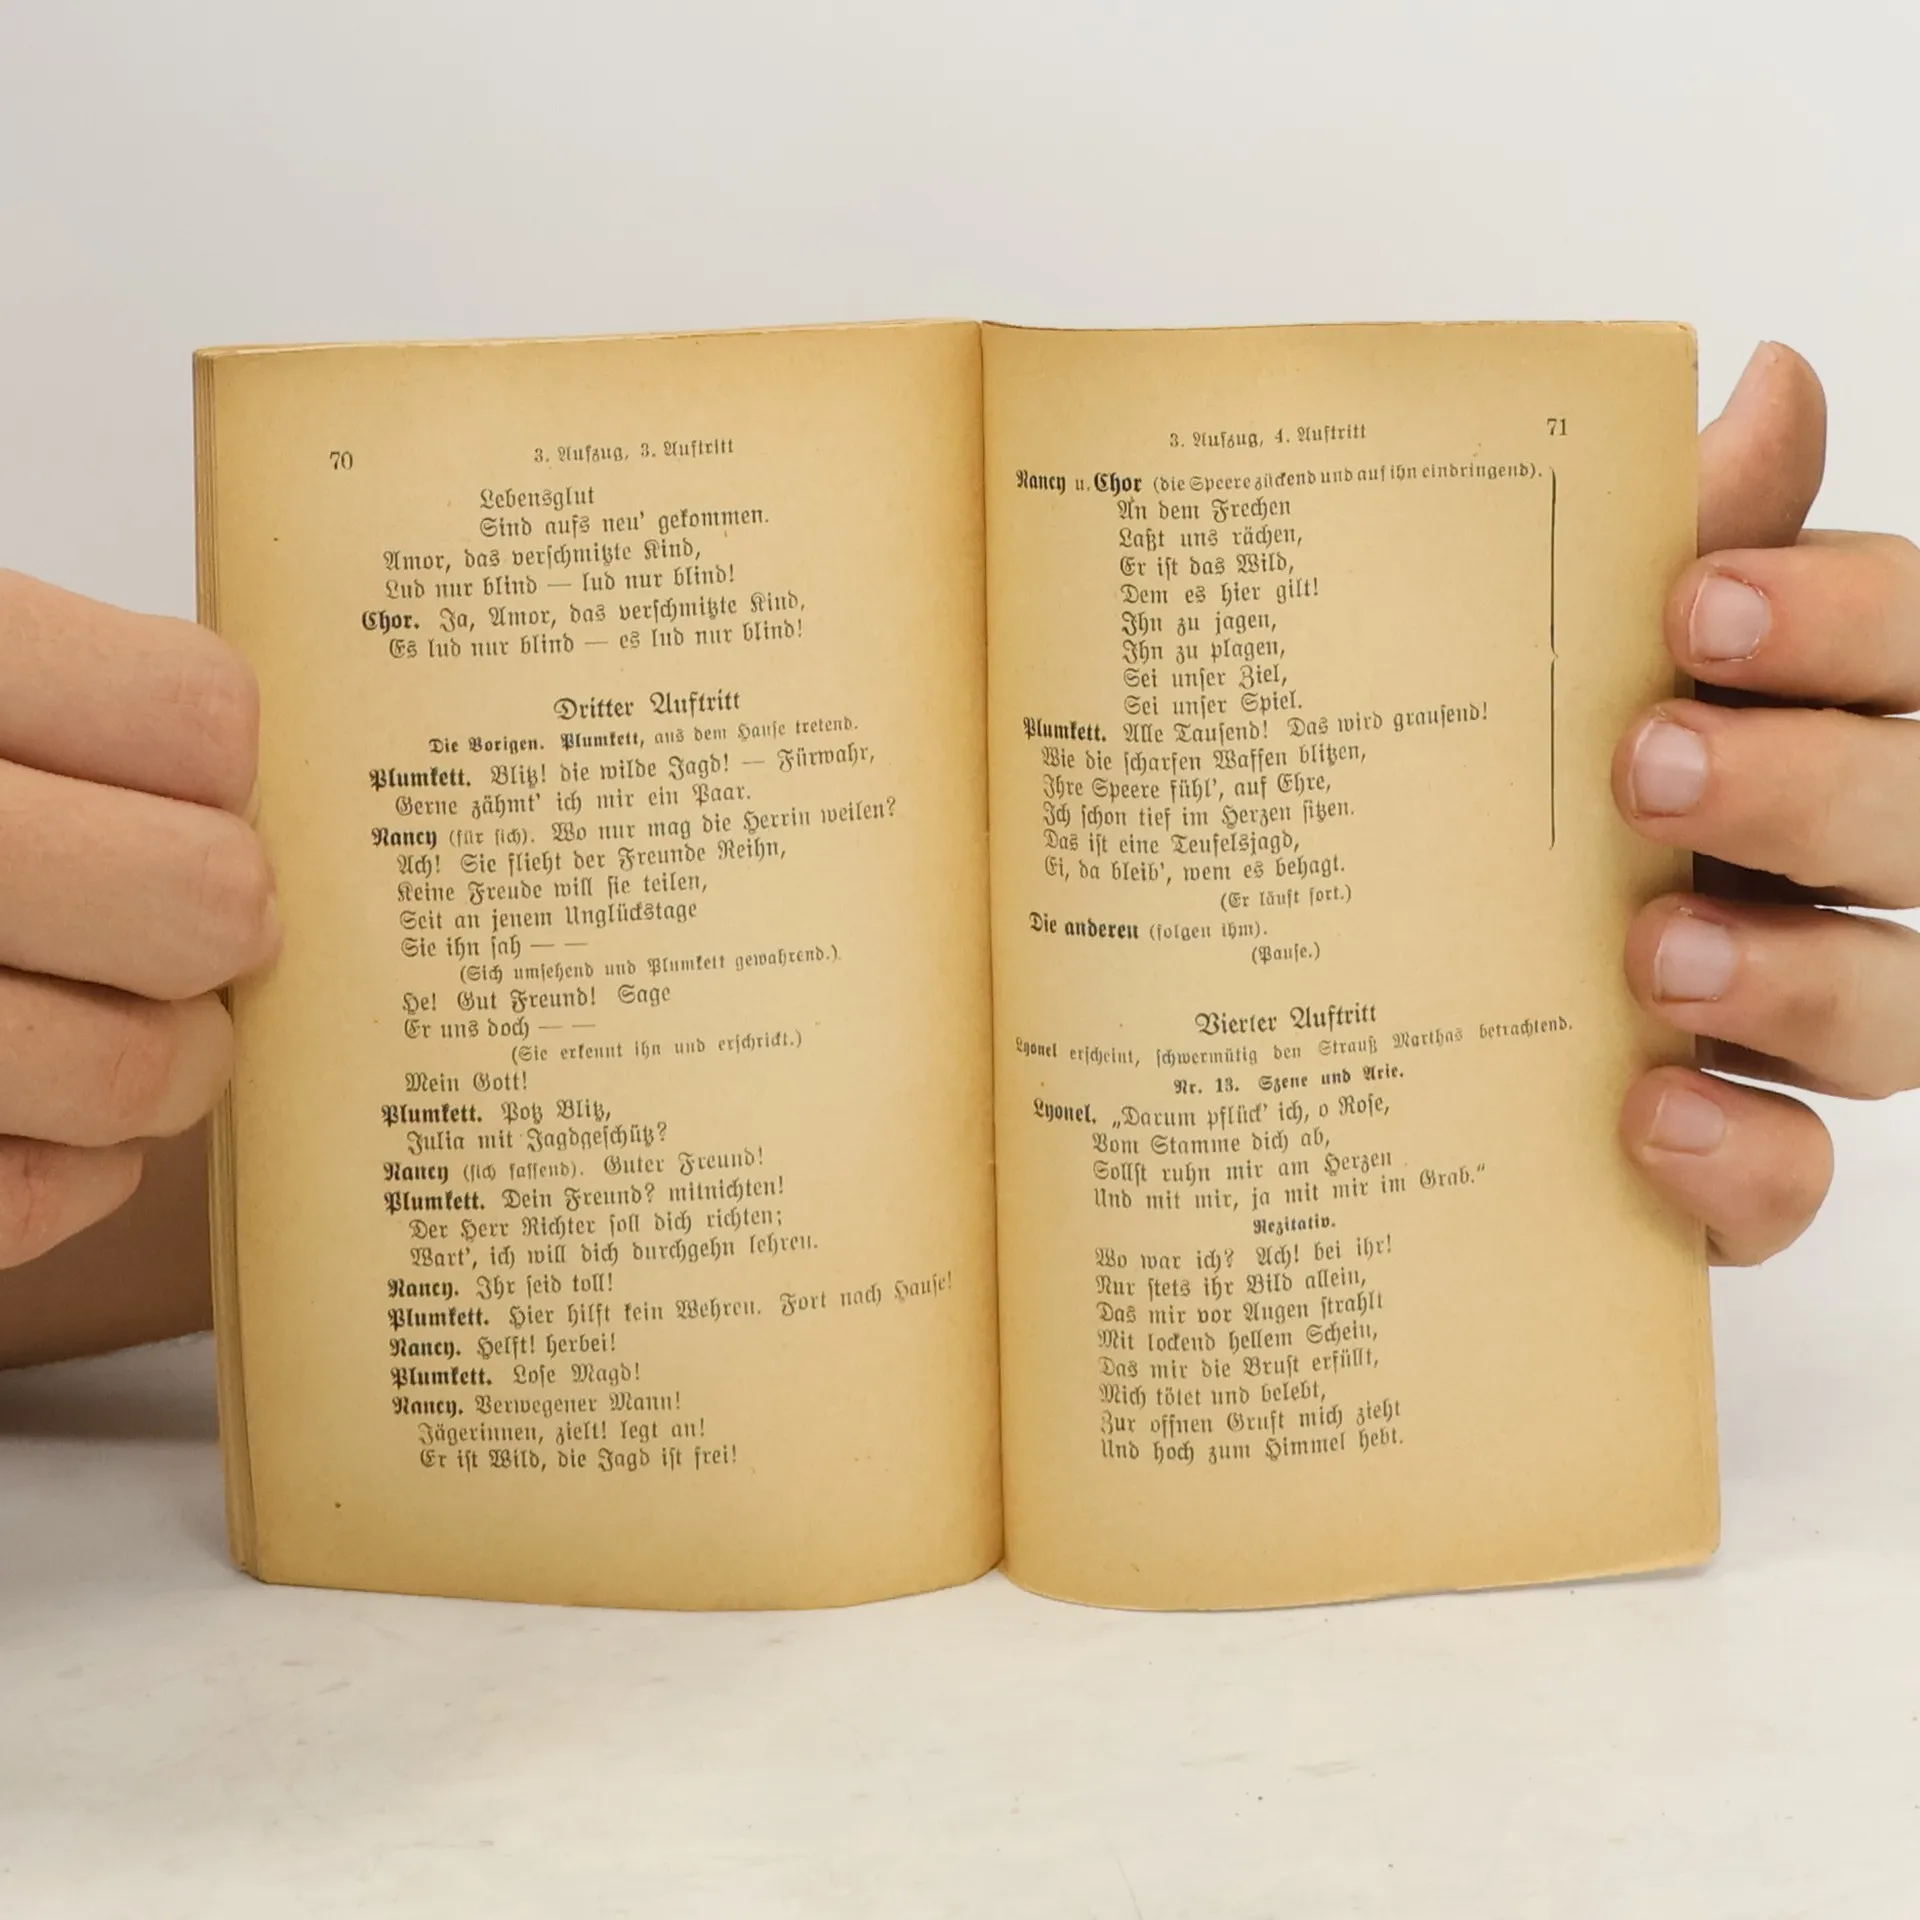 70
3. Aufzug, 3. Auftritt
Lebensglut
Sind aufs neu' gekommen.
Amor, das verschmitzte Kind,
Lud nur blind — lud nur blind!
Chor. Ja, Amor, das verschmitzte Kind,
Es lud nur blind — es lud nur blind!
Dritter Auftritt
Die Vorigen. Plumkett, aus dem Hause tretend.
Plumkett. Blitz! die wilde Jagd! — Fürwahr,
Gerne zähmt' ich mir ein Paar.
Nancy (für sich). Wo nur mag die Herrin weilen?
Ach! Sie flieht der Freunde Reihn,
Keine Freude will sie teilen,
Seit an jenem Unglückstage
Sie ihn sah — —
(Sich umsehend und Plumkett gewahrend.)
He! Gut Freund! Sage
Er uns doch — —
(Sie erkennt ihn und erschrickt.)
Mein Gott!
Plumkett. Potz Blitz,
Julia mit Jagdgeschütz?
Nancy (sich fassend). Guter Freund!
Plumkett. Dein Freund? mitnichten!
Der Herr Richter soll dich richten;
Wart', ich will dich durchgehn lehren.
Nancy. Ihr seid toll!
Plumkett. Hier hilft kein Wehren. Fort nach Hause!
Nancy. Helft! herbei!
Plumkett. Lose Magd!
Nancy. Verwegener Mann!
Jägerinnen, zielt! legt an!
Er ist Wild, die Jagd ist frei!
3. Aufzug, 4. Auftritt
71
Nancy u. Chor (die Speere zückend und auf ihn eindringend).
An dem Frechen
Laßt uns rächen,
Er ist das Wild,
Dem es hier gilt!
Ihn zu jagen,
Ihn zu plagen,
Sei unser Ziel,
Sei unser Spiel.
Plumkett. Alle Tausend! Das wird grausend!
Wie die scharfen Waffen blitzen,
Ihre Speere fühl', auf Ehre,
Ich schon tief im Herzen sitzen.
Das ist eine Teufelsjagd,
Ei, da bleib', wem es behagt.
(Er läuft fort.)
Die anderen (folgen ihm).
(Pause.)
Vierter Auftritt
Lyonel erscheint, schwermütig den Strauß Marthas betrachtend.
Nr. 13. Szene und Arie.
Lyonel. „Darum pflück' ich, o Rose,
Vom Stamme dich ab,
Sollst ruhn mir am Herzen
Und mit mir, ja mit mir im Grab.“
Rezitativ.
Wo war ich? Ach! bei ihr!
Nur stets ihr Bild allein,
Das mir vor Augen strahlt
Mit lockend hellem Schein,
Das mir die Brust erfüllt,
Mich tötet und belebt,
Zur offnen Gruft mich zieht
Und hoch zum Himmel hebt.